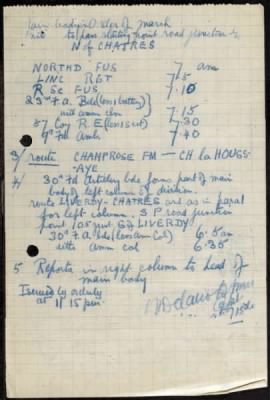 main body in order of march
unit to pass starting point road junction ½
N of CHATRES
NORTHD FUS 7 am
LINC RGT 7.5
R Sc FUS 7.10
23rd F.A. Bde (less 1 battery)
with ammn clmn 7.15
57 Coy R E (less 1 sect) 7.30
7th Fd Amb 7.40
3/ route CHAMPROSE FM — CH la HOUSS-
-AYE
4/ 30th Fd Artillery bde forms part of main
body of left column of division.
route LIVERDY - CHATRES and as in para 1
for left column. S P road junction
point 1 at present S of LIVERDY
30th F.A. bde (less am Col) 6.5 am
with amm col 6.35
5 Reports in right column to head of
main body
Issued by orderly
at 11 15 pm